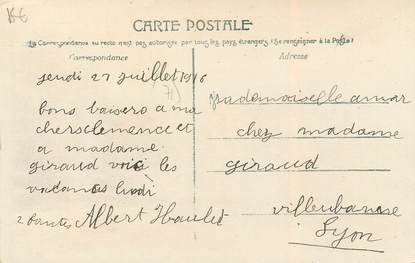 CARTE POSTALE
La Correspondance au recto n'est pas autorisée par tous les pays étrangers (Se renseigner à la Poste)
Correspondance
Adresse
jeudi 27 juillet 1916
bons baisers a ma
cher clemence et
a madame
giraud voici les
vacances lundi
Albert
mademoiselle amar
chez madame
giraud
villeubanne
Lyon